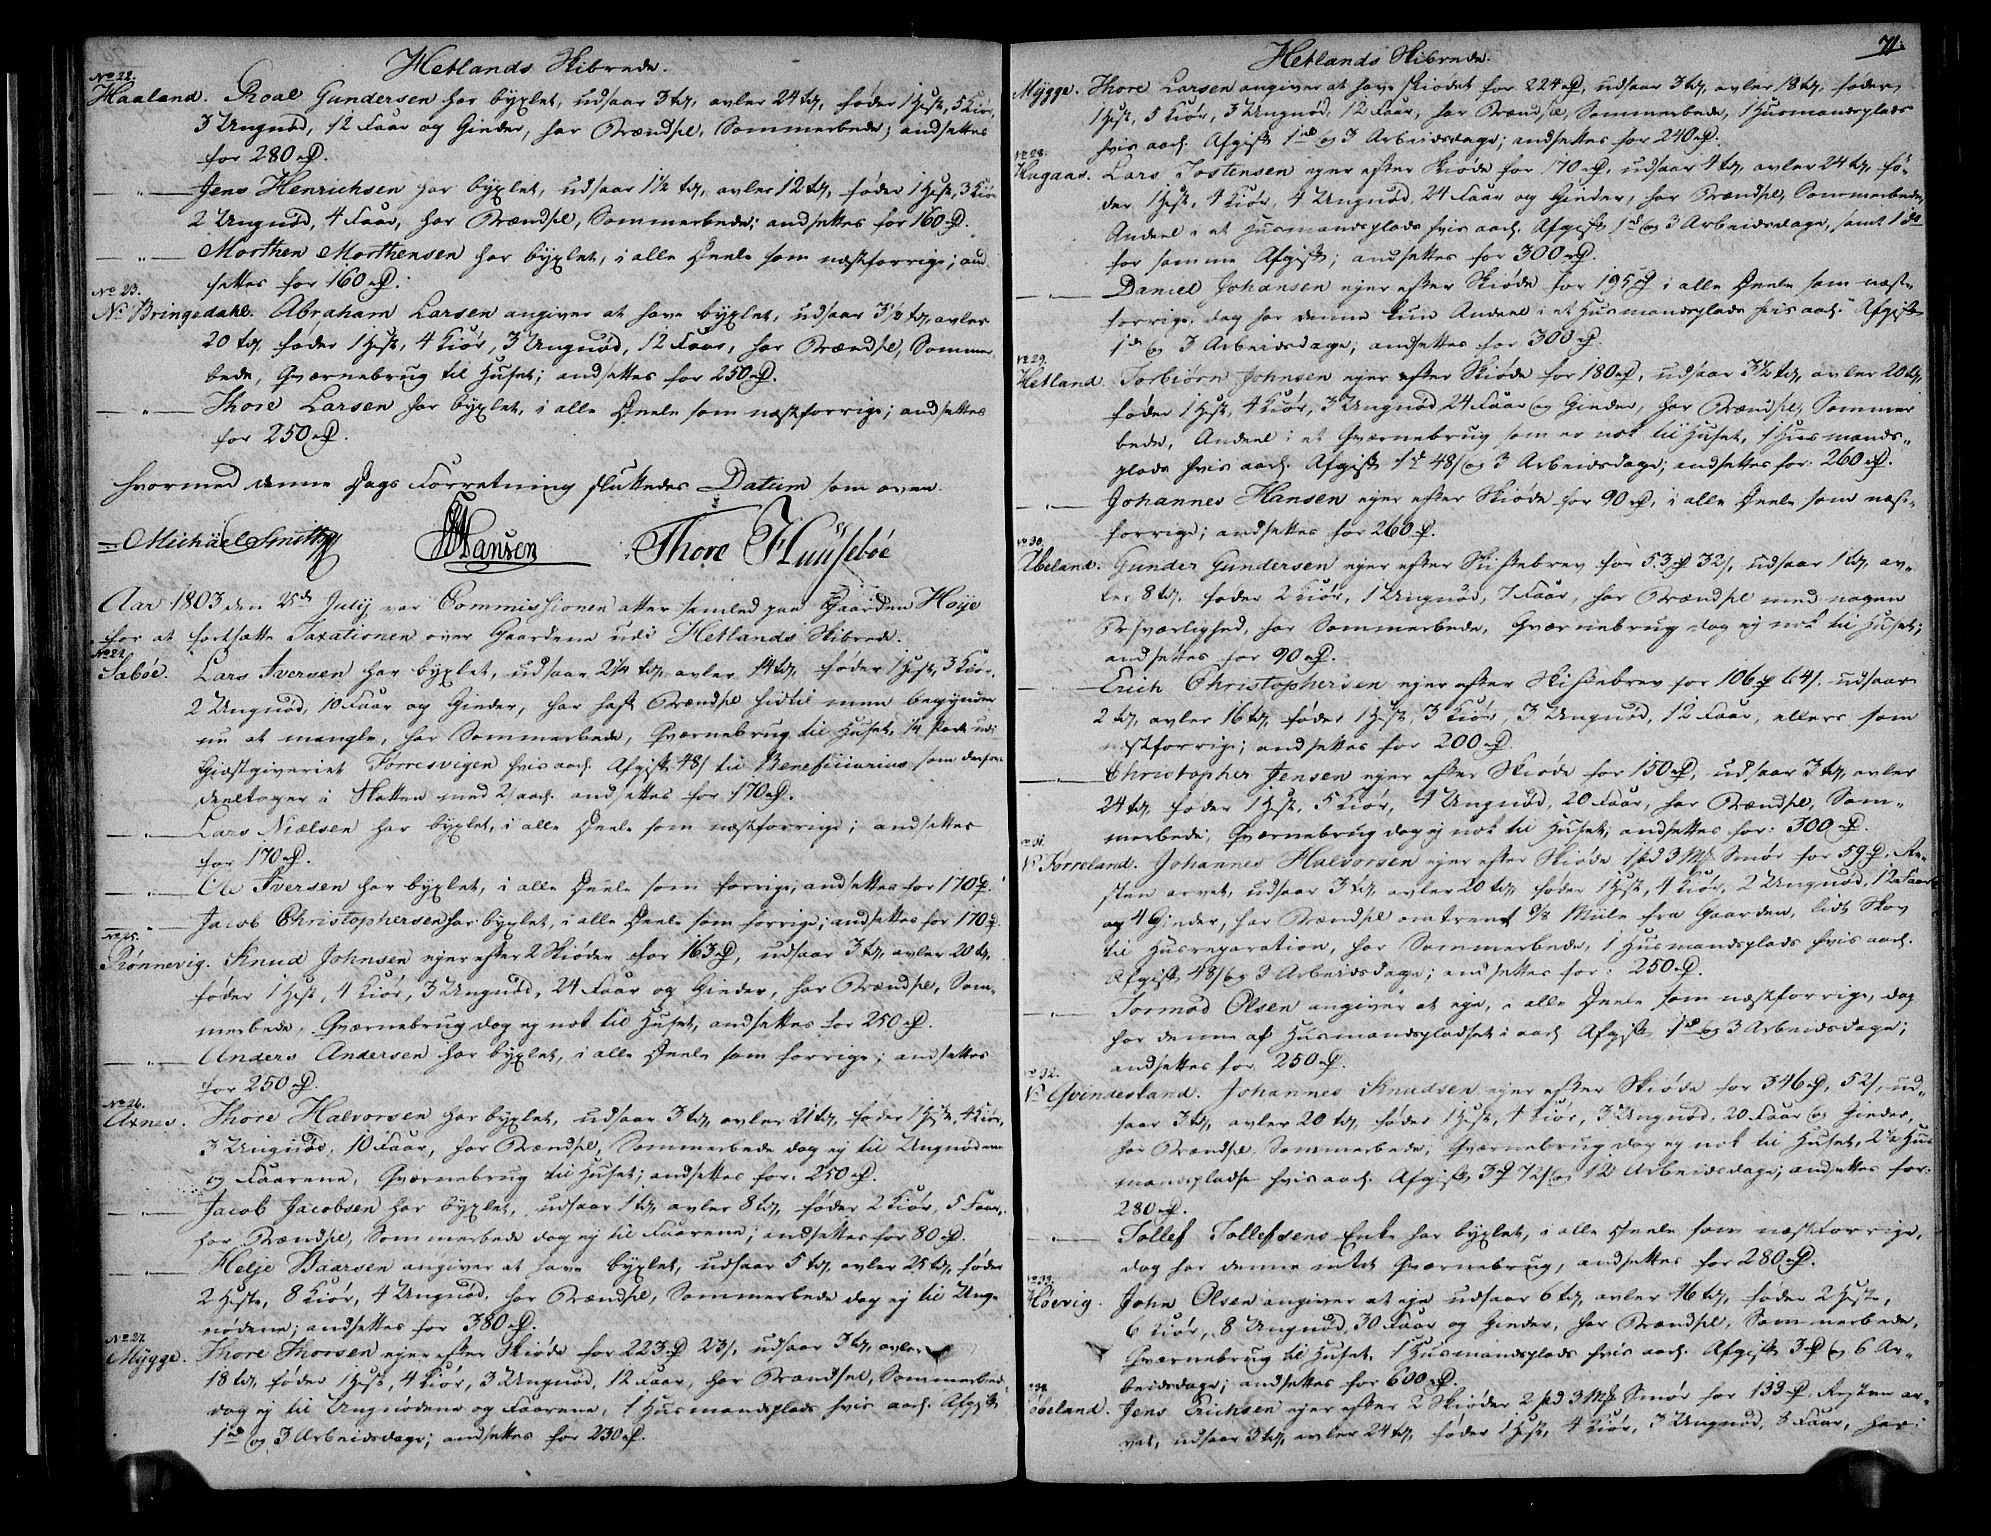 Hetlands Skibrede.
No 22.
Haaland. Roal Gundersen har byxlet, udsaar 3 td, avler 24 td, føder 1 Hest, 5 Kiør,
3 Ungnød, 12 Faar og Gieder, har Brændsel, Sommerbede; andsettes
for 280 rd.
— " — Jens Henrichsen har byxlet, udsaar 1½ td, avler 12 td, føder 1 Hest, 3 Kiør
2 Ungnød, 4 Faar, har Brændsel, Sommerbede; andsettes for 160 rd.
— " — Morthen Morthensen har byxlet, i alle Deele som næstforrige; and-
settes for 160 rd.
No 23.
N. Bringedahl. Abraham Larsen angiver at have byxlet, udsaar 3½ td, avler
20 td, føder 1 Hest, 4 Kiør, 3 Ungnød, 12 Faar, har Brændsel, Sommer
bede, Qværnebrug til Huset; andsettes for 250 rd.
— " — Thore Larsen har byxlet, i alle Deele som næstforrige; andsettes
for 250 rd.
hvormed denne Dags Forretning sluttedes Datum som oven.
Michäel Smith Hansen Thore Huusebøe
Aar 1803 den 25de July var Commissionen atter samled paa Gaarden Høye
for at fortsætte Taxationen over Gaardene udi Hetlands Skibrede.
No 24.
Sabøe. Lars Iversen har byxlet, udsaar 2¼ td, avler 14 td, føder 1 Hest, 3 Kiør,
2 Ungnød, 10 Faar og Gieder, har haft Brændsel hidtil men begynder
nu at mangle, har Sommerbede, Qværnebrug til Huset, ¼ Part udi
Giæstgiveriet Torresvigen hvis aarl. Afgift 48 s til Beneficiarius som derfor
deeltager i Skatten med 2 s aarl. andsettes for 170 rd.
— " — Lars Nielsen har byxlet, i alle Deele som næstforrige; andsettes
for 170 rd.
— " — Ole Iversen har byxlet, i alle Deele som forrige, andsettes for 170 rd.
— " — Jacob Christophersen har byxlet, i alle Deele som forrige; andsettes for 170 rd.
No 25.
Rønnevig. Knud Johnsen ejer efter 2 Skiøder for 163 rd, udsaar 3 td, avler 20 td,
føder 1 Hest, 4 Kiør, 3 Ungnød, 24 Faar og Gieder, har Brændsel, Som-
merbede, Qværnebrug dog ej nok til Huset, andsettes for 250 rd.
— " — Anders Andersen har byxlet, i alle Deele som forrige; andsettes
for 250 rd.
No 26.
Axnes. Thore Halvorsen har byxlet, udsaar 3 td, avler 21 td, føder 1 Hest, 4 Kiør,
3 Ungnød, 10 Faar, har Brændsel, Sommerbede dog ej til Ungnødene
og Faarene, Qværnebrug til Huset; andsettes for 250 rd.
— " — Jacob Jacobsen har byxlet, udsaar 1 td, avler 8 td, føder 2 Kiør, 5 Faar,
har Brændsel, Sommerbede dog ej til Faarene; andsettes for 80 rd.
— " — Helje Baarsen angiver at have byxlet, udsaar 5 td, avler 25 td, føder
2 Heste, 8 Kiør, 4 Ungnød, har Brændsel, Sommerbede dog ej til Ung-
nødene; andsettes for 380 rd.
No 27.
Mygge. Thore Thorsen ejer efter Skiøde for 223 rd 23 s, udsaar 3 td, avler
18 td, føder 1 Hest, 4 Kiør, 3 Ungnød, 12 Faar, har Brændsel, Sommerbede
dog ej til Ungnødene og Faarene, 1 Husmandsplads hvis aarl. Afgift
1 rd og 3 Arbeidsdage; andsettes for 230 rd.
Hetlands Skibrede.
71.
Mygge. Thore Larsen angiver at have skiødet for 224 rd, udsaar 3 td, avler 18 td, føder
1 Hest, 5 Kiør, 3 Ungnød, 12 Faar, har Brændsel, Sommerbede, 1 Husmandsplads
hvis aarl. Afgift 1 rd og 3 Arbeidsdage; andsettes for 240 rd.
No 28.
Hugaas. Lars Tostensen ejer efter Skiøde for 170 rd, udsaar 4 td, avler 24 td, fø-
der 1 Hest, 4 Kiør, 4 Ungnød, 24 Faar og Gieder, har Brændsel, Sommerbede,
Andeel i et Husmandsplads hvis aarl. Afgift 1 rd og 3 Arbeidsdage, samt 1 do
for samme Afgift; andsettes for 300 rd.
— " — Daniel Johansen ejer efter Skiøde for 195 rd i alle Deele som næst-
forrige, dog har denne kun Andeel i et Husmandsplads hvis aarl. Afgift
1 rd og 3 Arbeidsdage; andsettes for 300 rd.
No 29.
Hetland. Torbiørn Johnsen ejer efter Skiøde for 180 rd, udsaar 3½ td, avler 20 td,
føder 1 Hest, 4 Kiør, 3 Ungnød, 24 Faar og Gieder, har Brændsel, Sommer
bede, Andeel i et Qværnebrug som er nok til Huset, 1 Husmands-
plads hvis aarl. Afgift 1 rd 48 s og 3 Arbeidsdage; andsettes for 260 rd.
— " — Johannes Hansen ejer efter Skiøde for 90 rd, i alle Deele som næst-
forrige; andsettes for 260 rd.
No 30.
Abeland. Gunder Gundersen ejer efter Skiftebrev for 53 rd 32 s, udsaar 1 td, av-
ler 8 td, føder 2 Kiør, 1 Ungnød, 7 Faar, har Brændsel med nogen
Besværlighed, har Sommerbede, Qværnebrug dog ej nok til Huset;
andsettes for 90 rd.
— Erich Christophersen ejer efter Skiftebrev for 106 rd 64 s, udsaar
2 td, avler 16 td, føder 1 Hest, 3 Kiør, 3 Ungnød, 12 Faar, ellers som
næstforrige; andsettes for 200 rd.
— " — Christopher Jensen ejer efter Skiøde for 150 rd, udsaar 3 td, avler
24 td, føder 1 Hest, 5 Kiør, 4 Ungnød, 20 Faar, har Brændsel, Som-
merbede, Qværnebrug dog ej nok til Huset; andsettes for 300 rd.
No 31.
N. Førreland. Johannes Halvorsen ejer efter Skiøde 1 pd 3 Mk Smør for 59 rd, Re-
sten arvet, udsaar 3 td, avler 20 td, føder 1 Hest, 4 Kiør, 2 Ungnød, 12 Faar
og 4 Gieder, har Brændsel omtrent 3/8 Miile fra Gaarden, lidt Skov
til Husreparation, har Sommerbede, 1 Husmandsplads hvis aarl.
Afgift 48 s og 3 Arbeidsdage; andsettes for 250 rd.
— " — Tormod Olsen angiver at eje, i alle Deele som næstforrige, dog
har denne af Husmandspladset i aarl. Afgift 1 rd og 3 Arbeidsdage;
andsettes for 250 rd.
No 32.
N. Qvindesland. Johannes Knudsen ejer efter Skiøde for 346 rd, 52 s, ud-
saar 3 td, avler 20 td, føder 1 Hest, 4 Kiør, 3 Ungnød, 20 Faar og Gieder,
har Brændsel, Sommerbede, Qværnebrug dog ej nok til Huset, 2de Hus
mandspladse hvis aarl. Afgift 3 rd 72 s og 12 Arbeidsdage; andsettes for
280 rd.
— " — Tollef Tollefsens Enke har byxlet, i alle Deele som næstforrige,
dog har denne intet Qværnebrug, andsettes for 280 rd.
No 33.
Høevig. John Olsen angiver at eje udsaar 6 td, avler 46 td, føder 2 Heste,
6 Kiør, 8 Ungnød, 30 Faar og Gieder, har Brændsel, Sommerbede,
Qværnebrug til Huset, 1 Husmandsplads hvis aarl. Afgift 3 rd og 6 Ar-
beidsdage; andsettes for 600 rd.
34.
Jens Erichsen ejer efter 2 Skiøder 2 pd 3 Mk Smør for 133 rd, Resten ar-
vet, udsaar 3 td, avler 24 td, føder 1 Hest, 4 Kiør, 3 Ungnød, 8 Faar, har